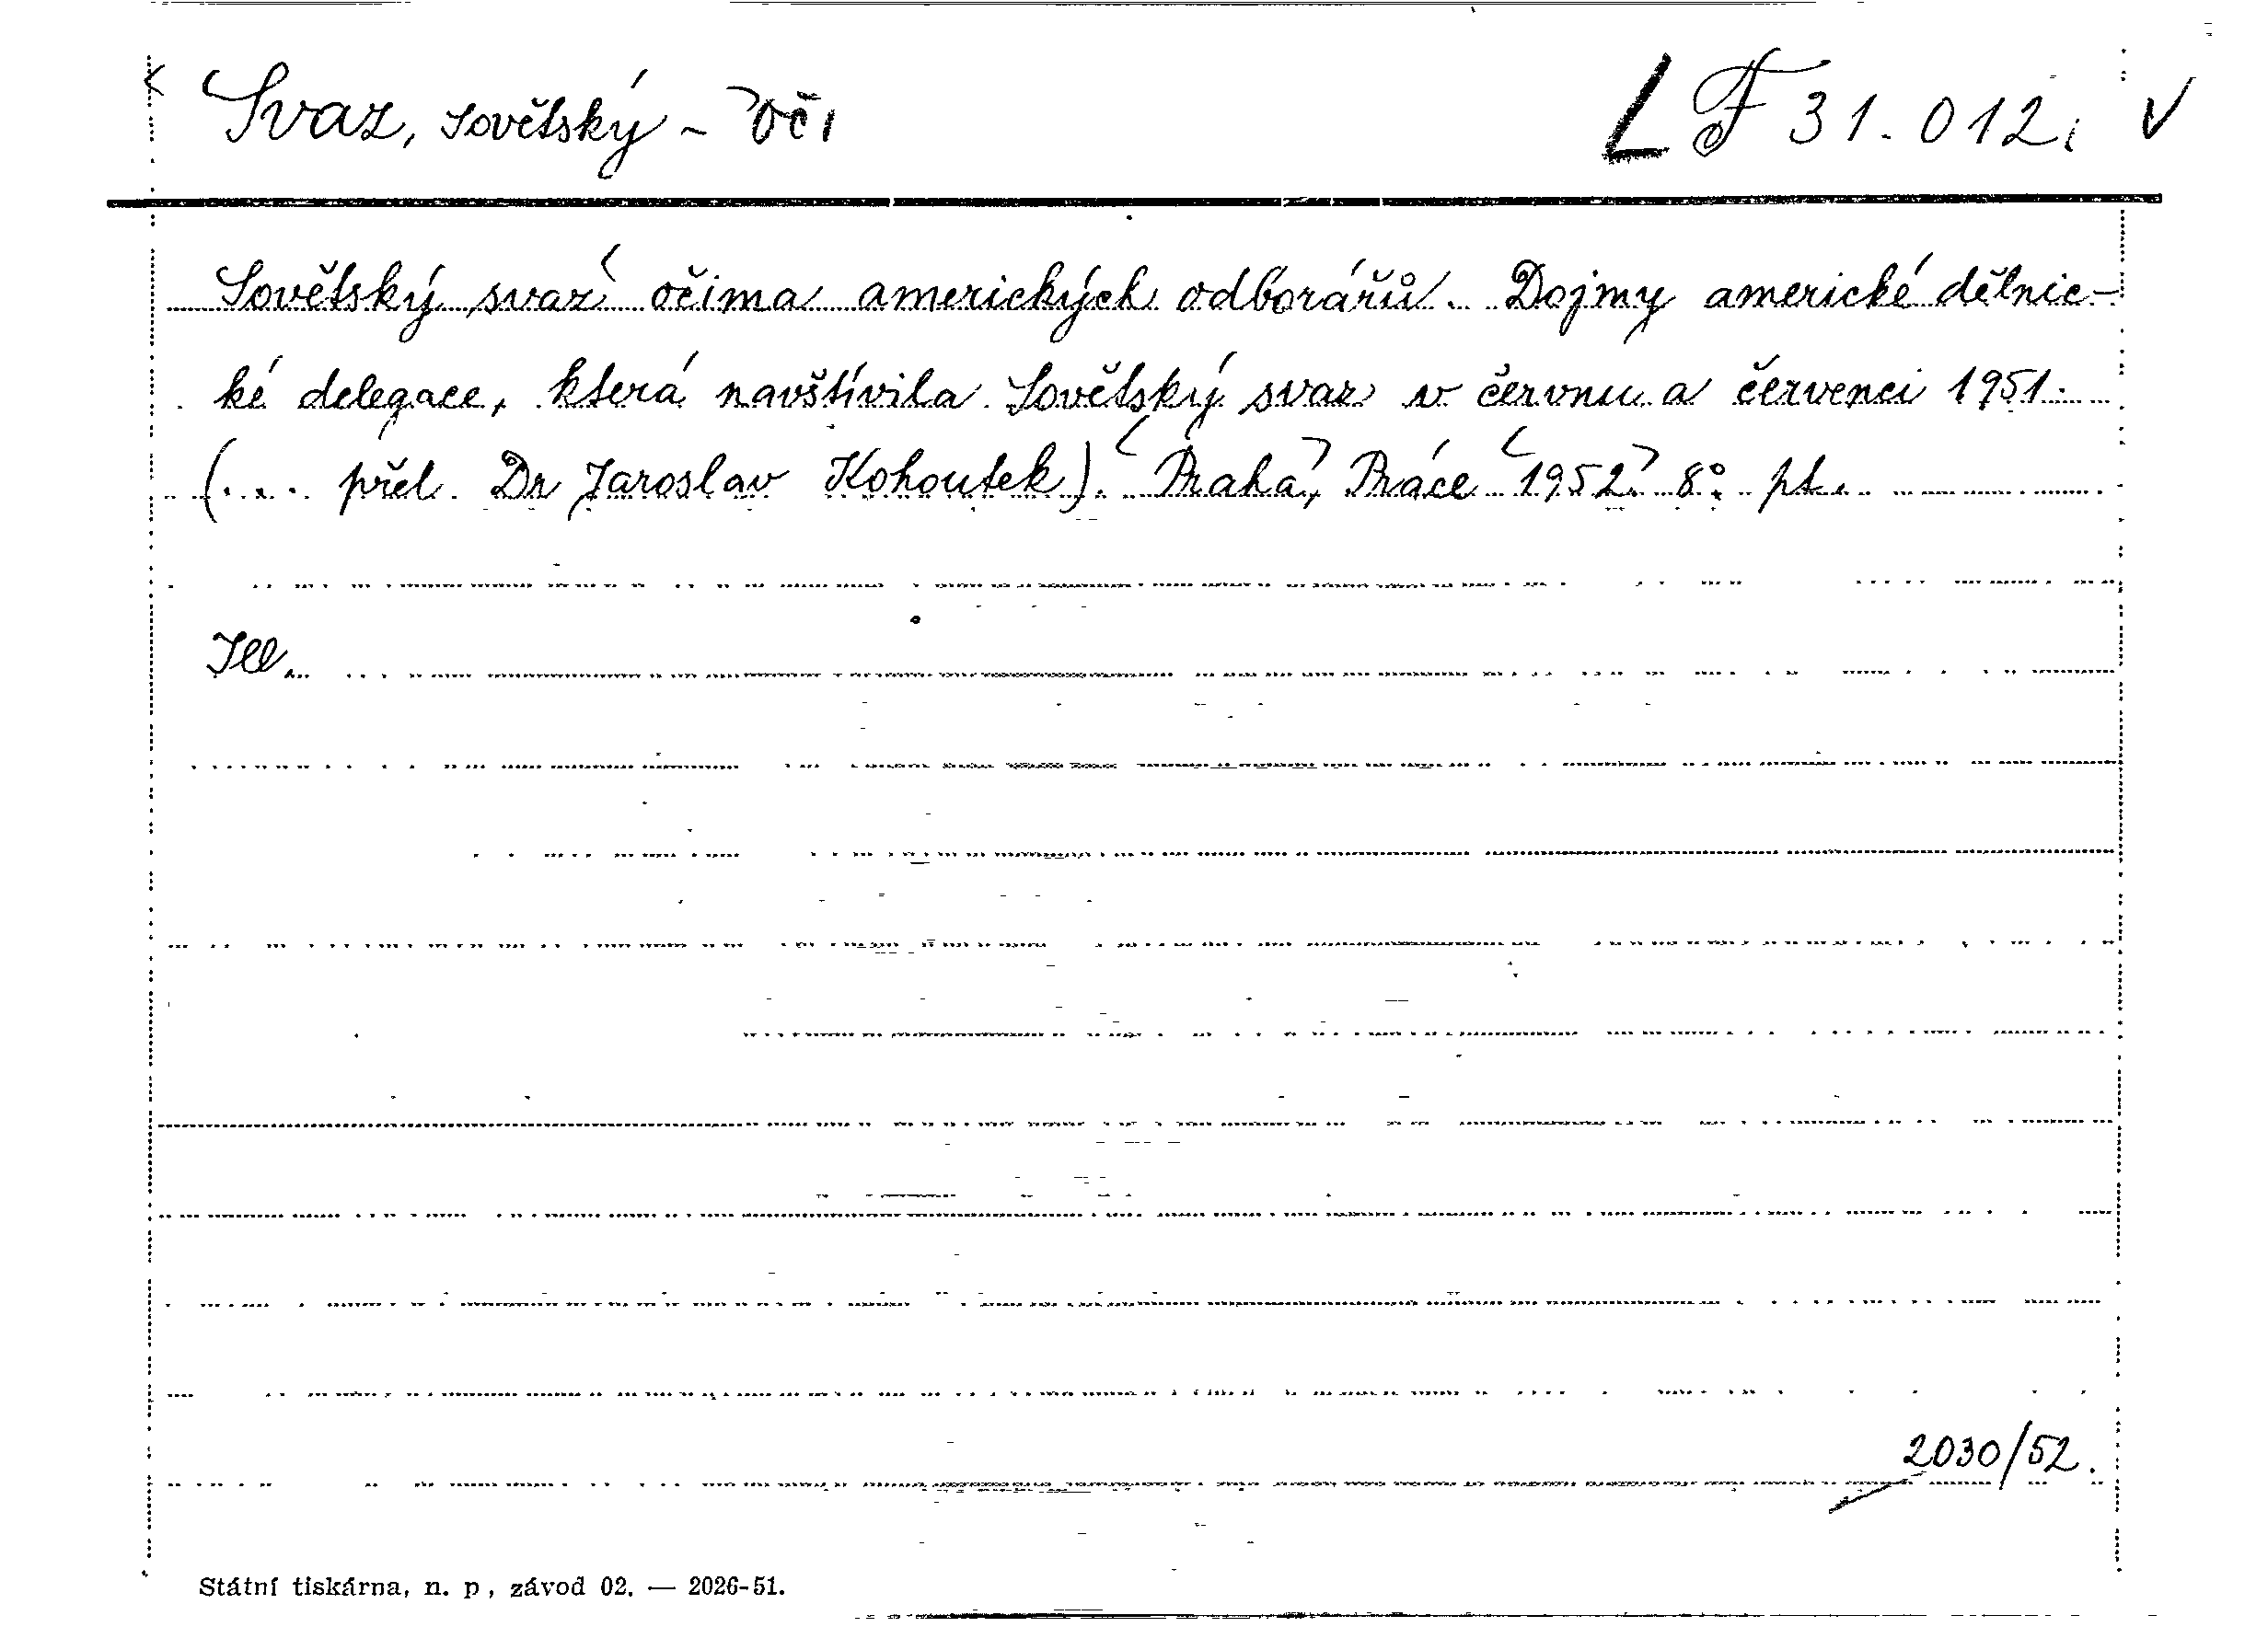 Svaz, sovětský - oči L F 31.012; V
Sovětský svaz očima amerických odborářů. Dojmy americké dělnic-
ké delegace, která navštívila Sovětský svaz v červnu a červenci 1951.
(... přel. Dr Jaroslav Kohoutek). Praha, Práce 1952. 8°. pt.
Ill.
2030/52.
Státní tiskárna, n. p., závod 02. — 2026-51.